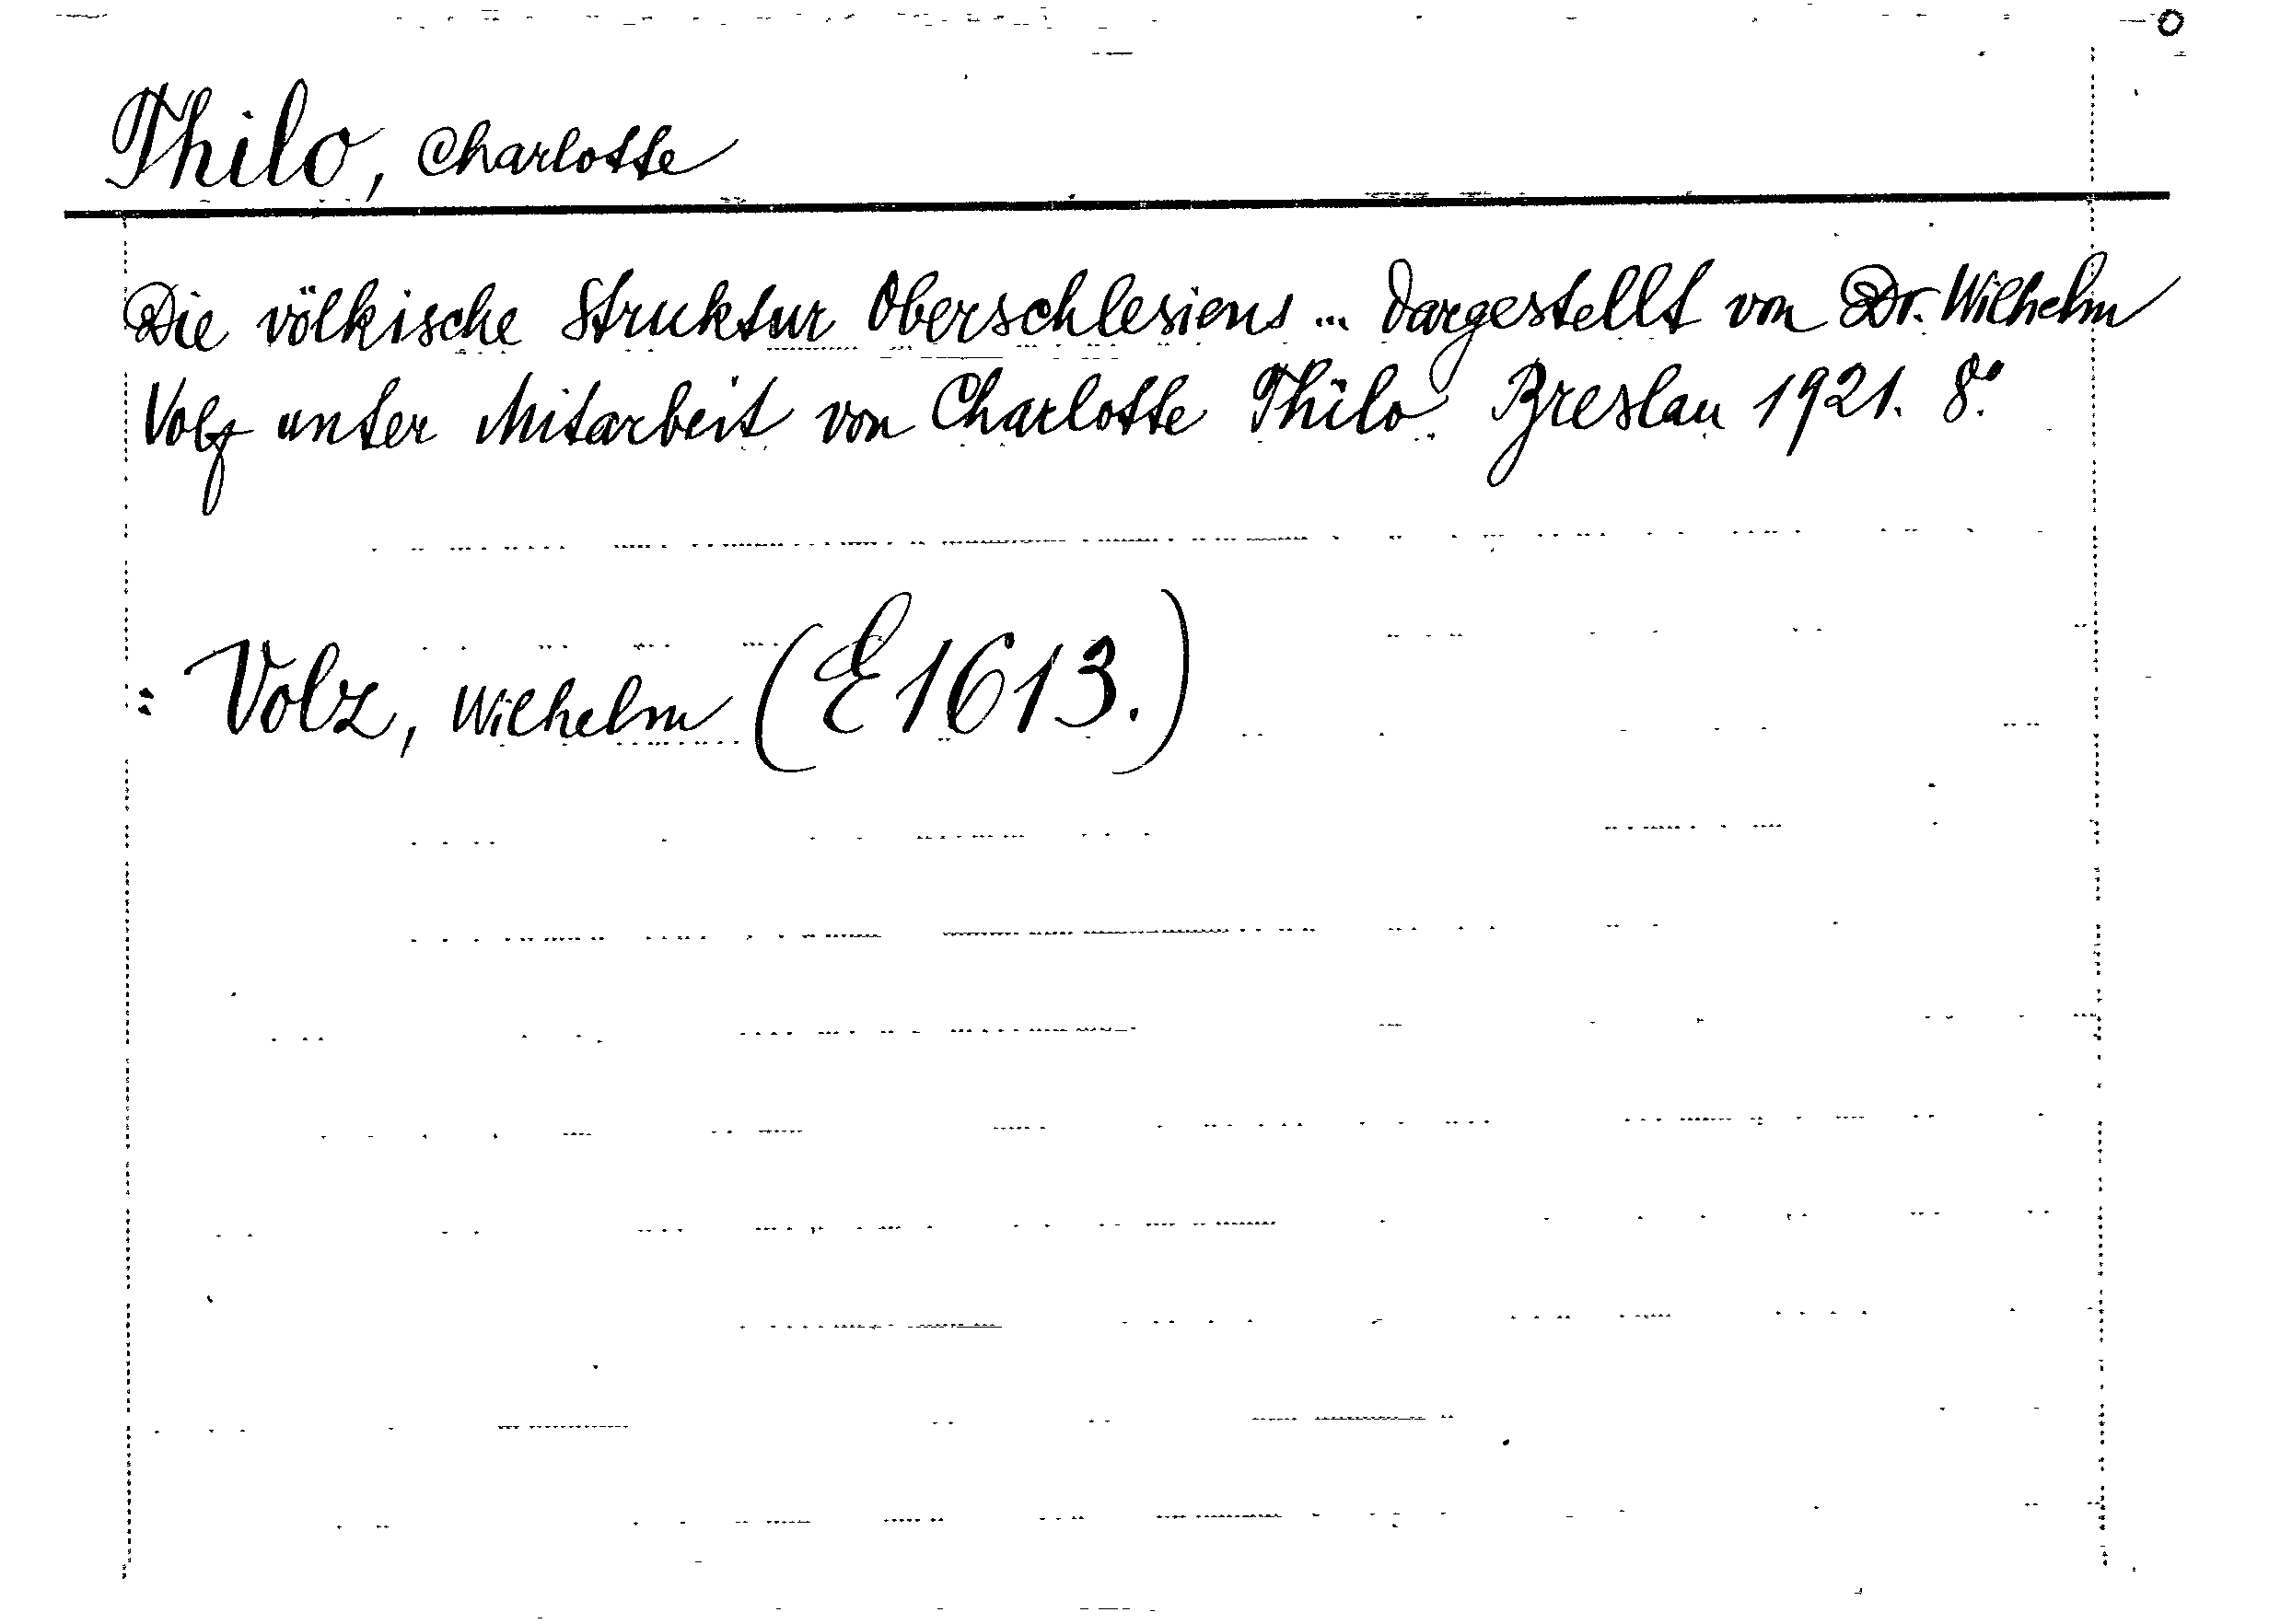 Thilo, Charlotte
Die völkische Struktur Oberschlesiens ... dargestellt von Dr. Wilhelm
Volz unter Mitarbeit von Charlotte Thilo. Breslau 1921. 8°.
: Volz, Wilhelm (E1613.)